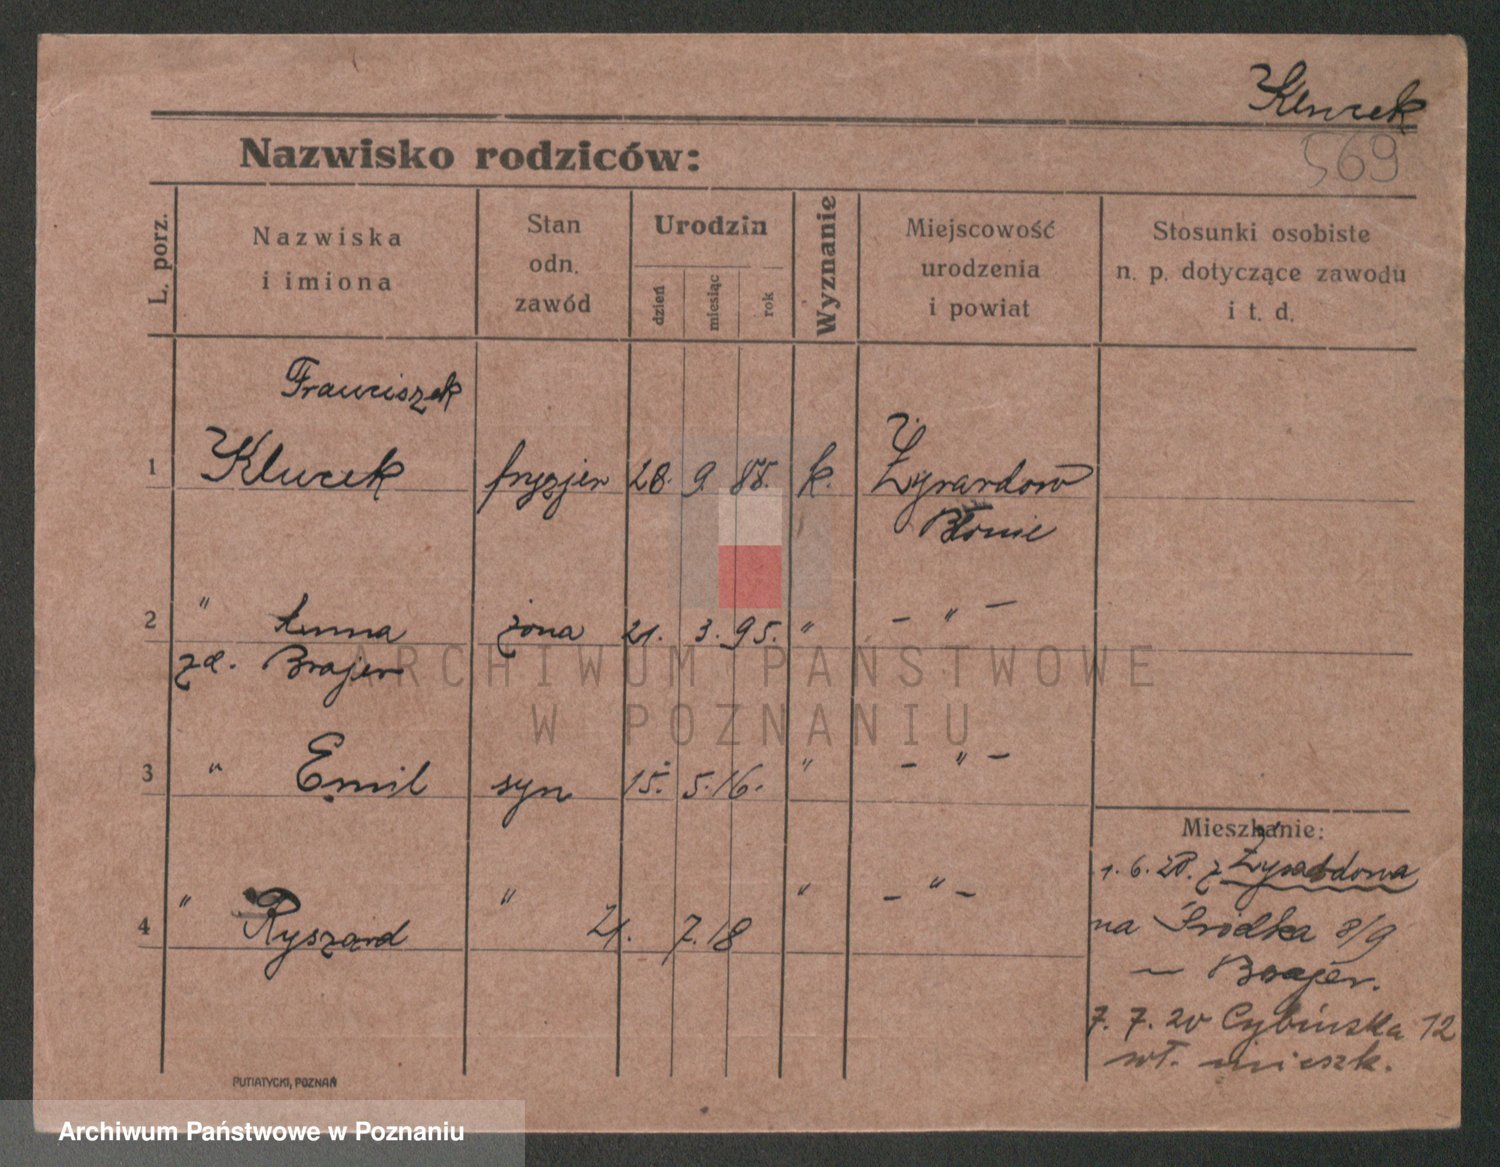 Klucek
569
Nazwisko rodziców:
L. porz.
Nazwiska
i imiona
Stan
odn.
zawód
Urodzin
dzień
miesiąc
rok
Wyznanie
Miejscowość
urodzenia
i powiat
Stosunki osobiste
n. p. dotyczące zawodu
i t. d.
Franciszek
1 Klucek fryzjer 28. 9. 88. k. Żyrardów
Błonie
2 " Anna żona 21. 3. 95. " — " —
zd. Brajer
3 " Emil syn 15. 5. 16. " — " —
4 " Ryszard " 21. 7. 18 " — " —
Mieszkanie:
1. 6. 20. z Żyrardowa
na Śródka 8/9
— Brajer.
7. 7. 20 Cybińska 12
wł. mieszk.
PUTIATYCKI, POZNAŃ
ARCHIWUM PAŃSTWOWE
W POZNANIU
Archiwum Państwowe w Poznaniu